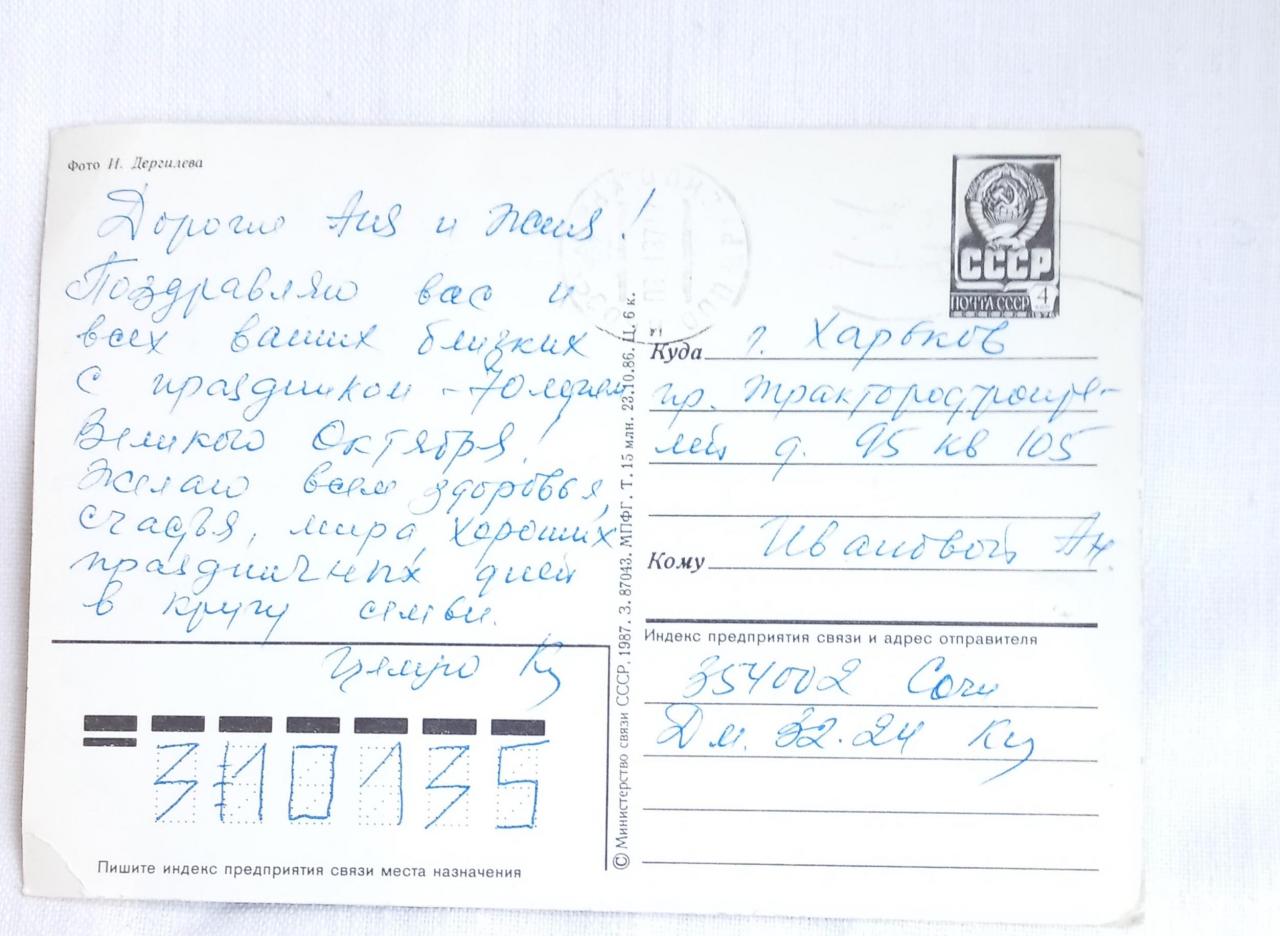 Фото И. Дергилева
Дорогие Аня и Женя!
Поздравляю вас и
всех ваших близких
с праздником – 70 летием
Великого Октября!
Желаю всем здоровья,
счастья, мира, хороших
праздничных дней
в кругу семьи.
Целую Ку
310135
Пишите индекс предприятия связи места назначения
© Министерство связи СССР, 1987. З. 87043. МПФГ. Т. 15 млн. 23.10.86. Ц. 6 к.
СССР
ПОЧТА СССР 4
Куда г. Харьков
пр. Тракторостроите-
лей д. 95 кв 105
Кому Ивановой Ан.
Индекс предприятия связи и адрес отправителя
354002 Сочи
Дм. 32.24 Ку